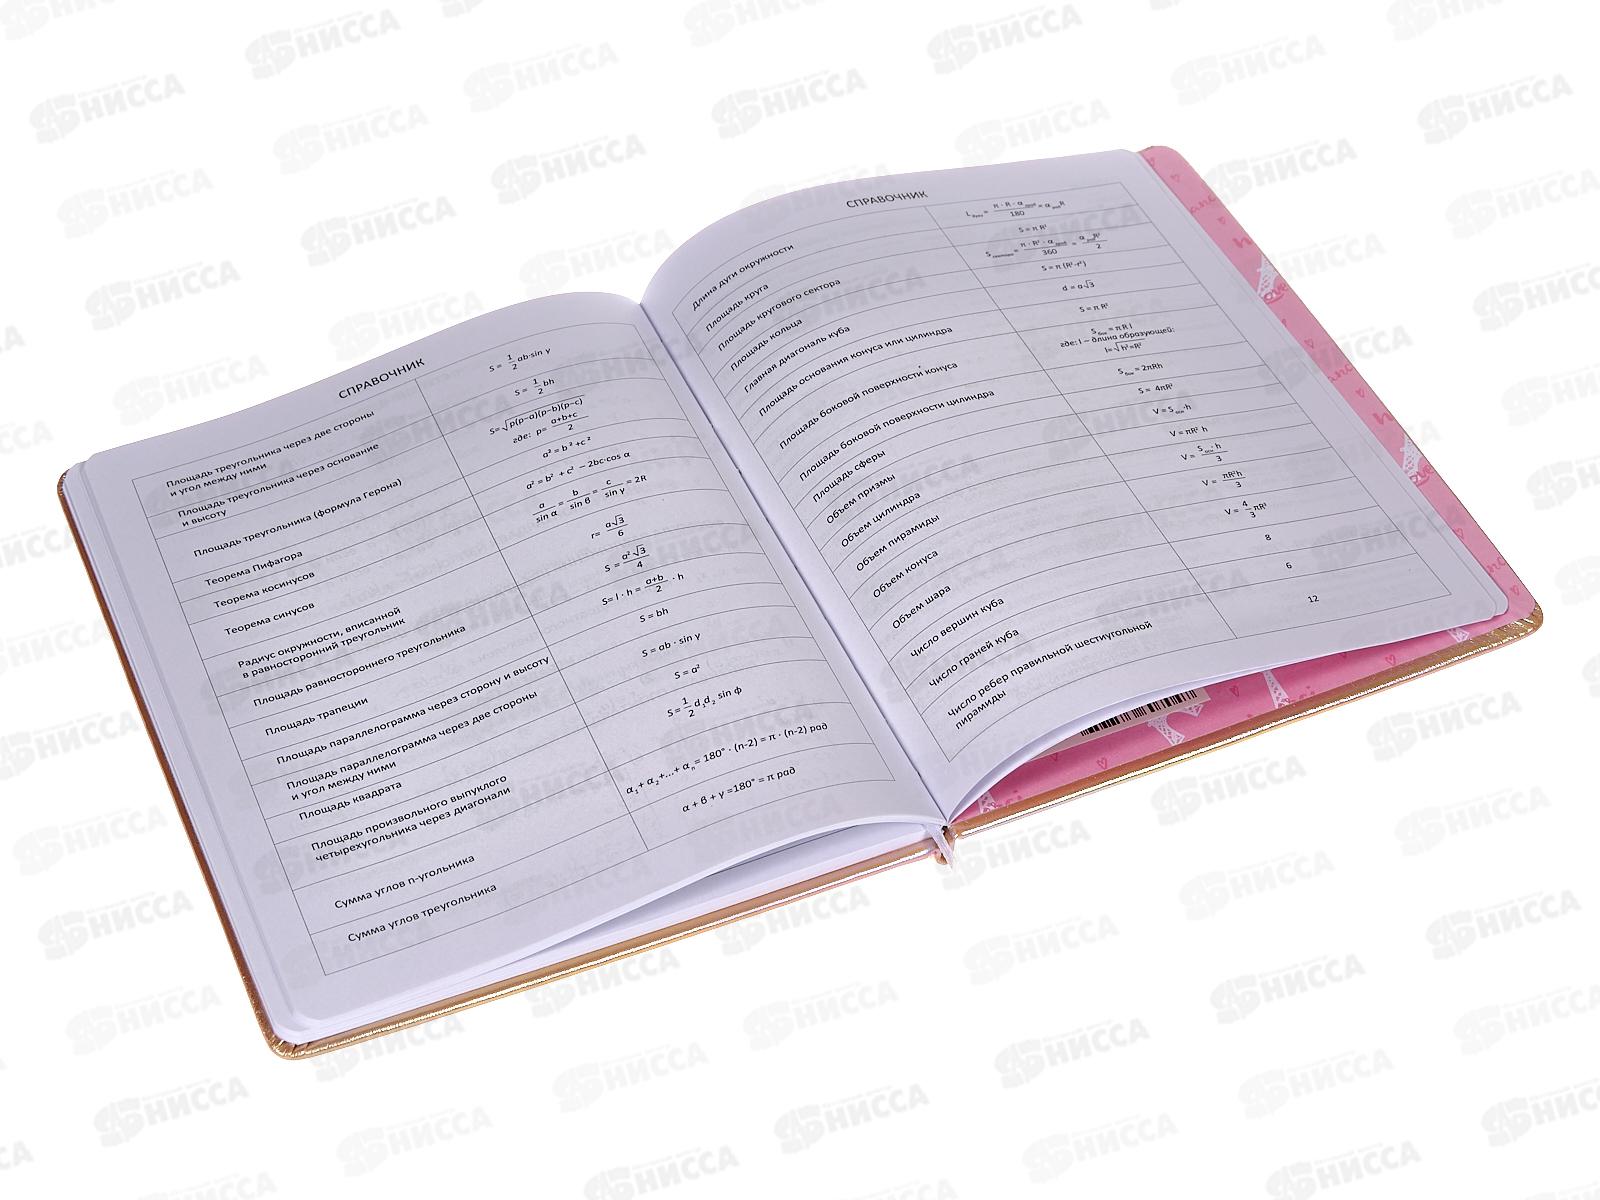 СПРАВОЧНИК
Площадь треугольника через две стороны
и угол между ними
S = 1/2 ab·sin γ
Площадь треугольника через основание
и высоту
S = 1/2 bh
Площадь треугольника (формула Герона)
S=√p(p−a)(p−b)(p−c)
где: p= a+b+c/2
Теорема Пифагора
a² = b² +c²
Теорема косинусов
a² = b² + c² − 2bc·cos α
Теорема синусов
a/sin α = b/sin β = c/sin γ = 2R
Радиус окружности, вписанной
в равносторонний треугольник
r= a√3/6
Площадь равностороннего треугольника
S = a²√3/4
Площадь трапеции
S= l · h = a+b/2 · h
Площадь параллелограмма через сторону и высоту
S = bh
Площадь параллелограмма через две стороны
и угол между ними
S = ab · sin γ
Площадь квадрата
S = a²
Площадь произвольного выпуклого
четырехугольника через диагонали
S= 1/2 d₁d₂ sin ф
Сумма углов n-угольника
α₁+ α₂ +...+ αₙ = 180° · (n-2) = π · (n-2) рад
Сумма углов треугольника
α + в + γ =180° = π рад
СПРАВОЧНИК
Длина дуги окружности
L дуги = π · R · α град/180 = α рад R
Площадь круга
S = π R²
Площадь кругового сектора
S сектора = π · R² · α град/360 = α рад R²/2
Площадь кольца
S = π (R²-r²)
Главная диагональ куба
d = a√3
Площадь основания конуса или цилиндра
S = π R²
Площадь боковой поверхности конуса
S бок = π R l
где: l − длина образующей:
l=√h²=R²
Площадь боковой поверхности цилиндра
S бок = 2πRh
Площадь сферы
S = 4πR²
Объем призмы
V = S осн·h
Объем цилиндра
V = πR² h
Объем пирамиды
V = S осн · h/3
Объем конуса
V = πR²h/3
Объем шара
V = 4/3 πR³
Число вершин куба
8
Число граней куба
6
Число ребер правильной шестиугольной
пирамиды
12
НИССА